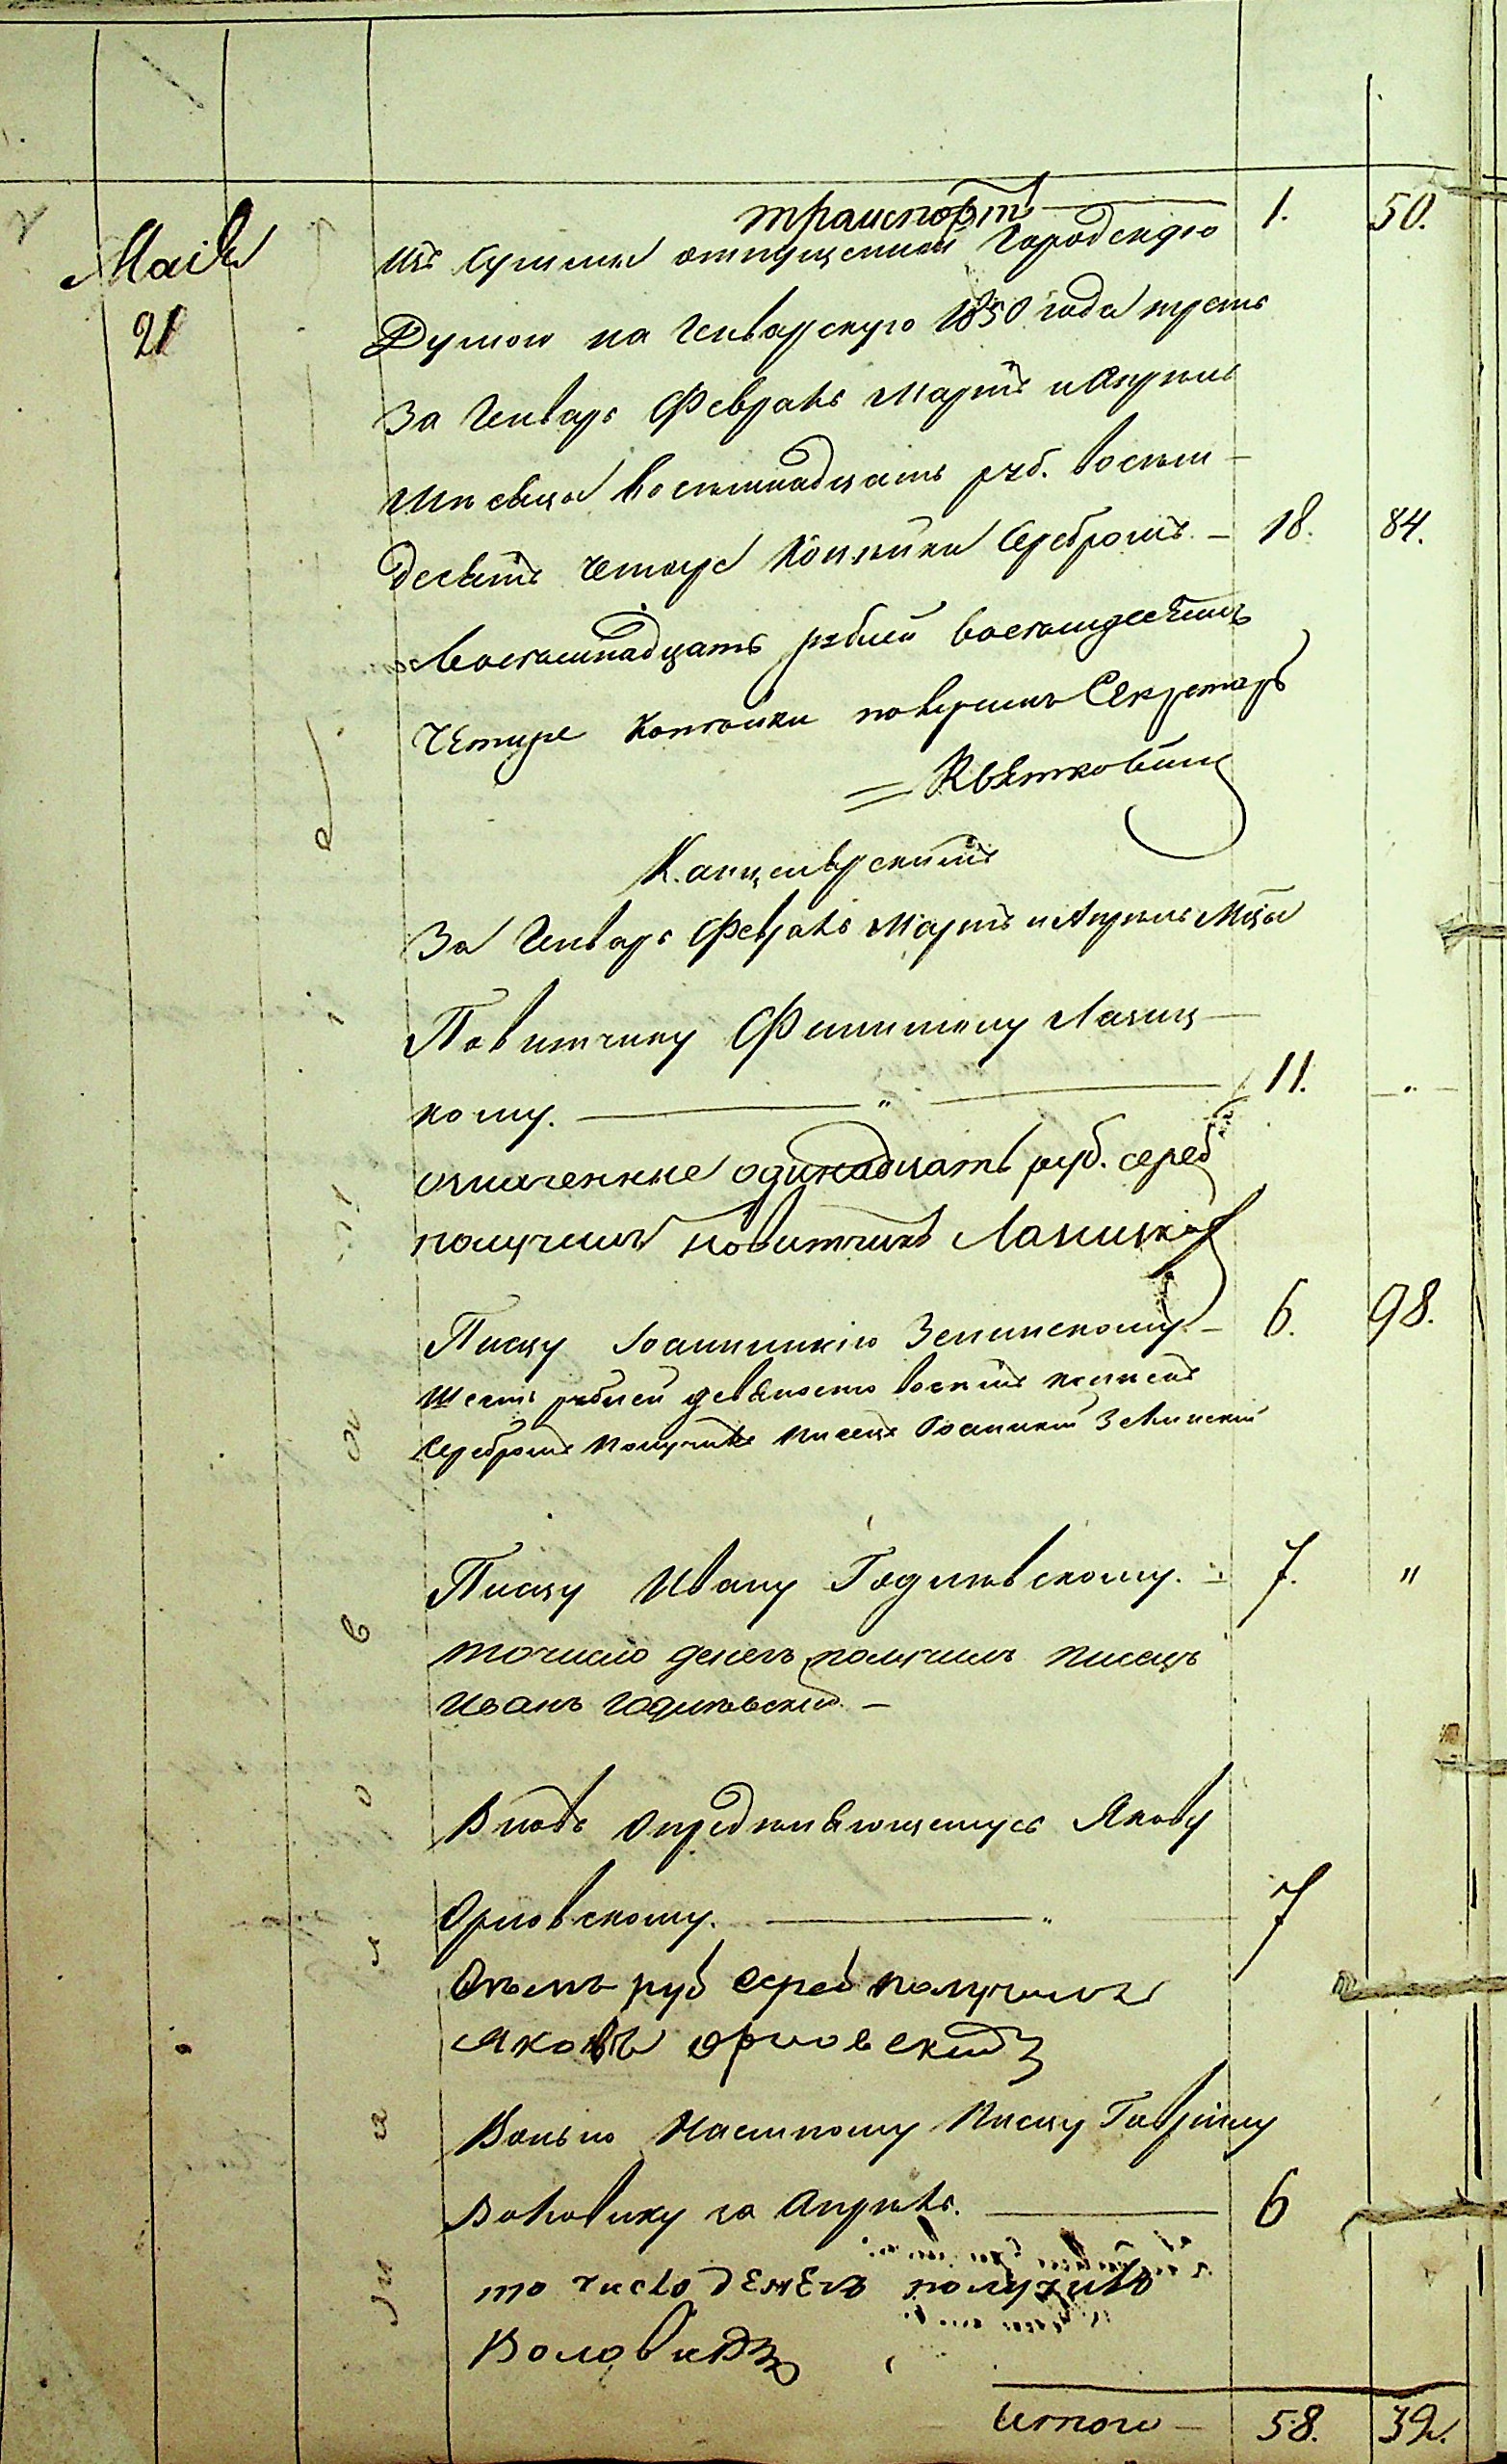 транспортъ — 1. 50.
Маія
21
изъ суммы отпущенной Городскою
Думою на Генварскую 1850 года треть
За Генварь Февраль Мартъ и Апрель
месяцы восемнадцать руб. восемь-
десятъ четыре копейки серебромъ. — 18. 84.
восемнадцать рублей восемдесятъ
четыре копейки получилъ Секретарь
Квятковскій
Канцелярскимъ
За Генварь Февраль Мартъ и Апрель Мца
Повитчику Филимону Ланиц-
кому. — " — 11. "
означенные одинадцать руб. сереб
получилъ повитчикъ Ланицкій
Писцу Іоанникію Зелинскому — 6. 98.
Шесть рублей девяносто восемь копеекъ
Серебромъ получилъ писецъ Іоанникій Зелинскій
Писцу Ивану Годлевскому. — 7. "
то число денегъ получилъ писецъ
Иванъ Годлевскій. —
Вновь определяющемусь Якову
Орловскому. — " — 7
семь руб сереб получилъ
Яковъ Орловскій
Вольно Наемному Писцу Гаврилу
Воловику за Апрель. — 6
то число денегъ получилъ
Воловикъ
Итого — 58. 32.